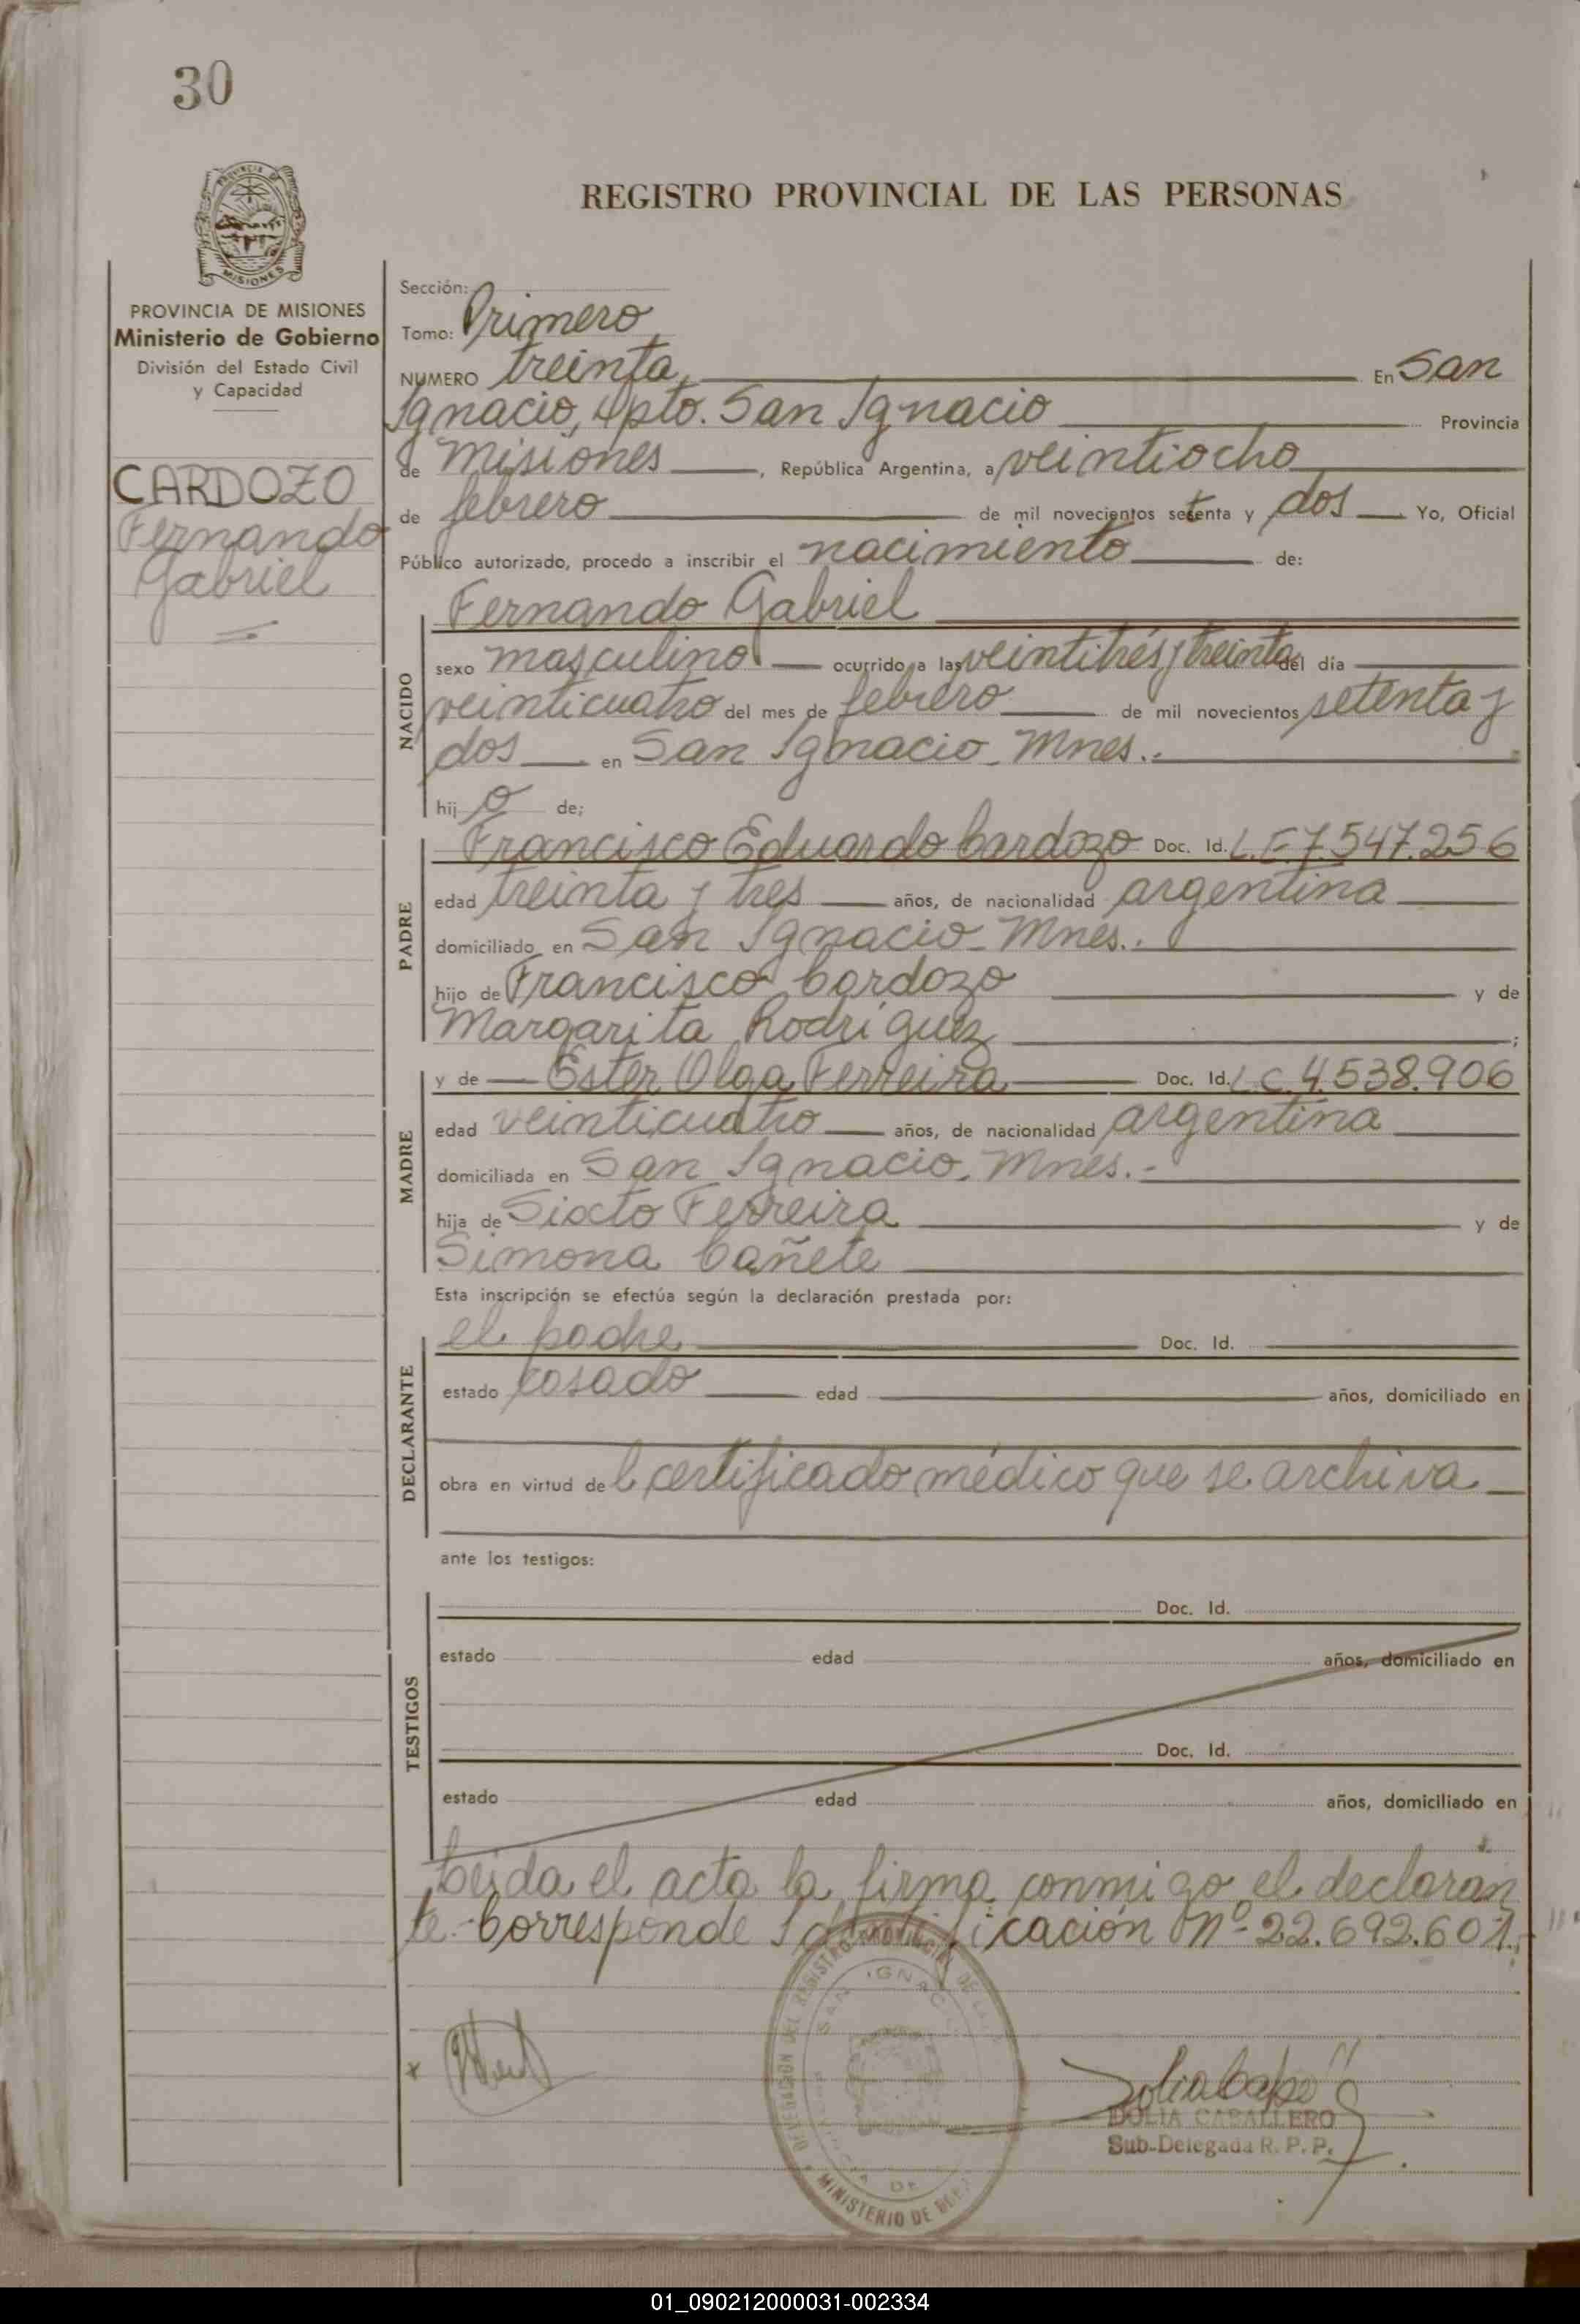 30
REGISTRO PROVINCIAL DE LAS PERSONAS
MISIONES
PROVINCIA DE MISIONES
Ministerio de Gobierno
División del Estado Civil
y Capacidad
CARDOZO
Fernando
Gabriel
Sección:
Tomo: Primero
NUMERO treinta, En San
Ignacio, dpto. San Ignacio Provincia
de Misiones, República Argentina, a veintiocho
de febrero de mil novecientos setenta y dos Yo, Oficial
Público autorizado, procedo a inscribir el nacimiento de:
NACIDO
Fernando Gabriel
sexo masculino ocurrido a las veintitrés y treinta del día
veinticuatro del mes de febrero de mil novecientos setenta y
dos en San Ignacio - Mnes.-
hijo de;
PADRE
Francisco Eduardo Cardozo Doc. Id. L.E 7.547.256
edad treinta y tres años, de nacionalidad argentina
domiciliado en San Ignacio - Mnes.-
hijo de Francisco Cardozo y de
Margarita Rodriguez ;
MADRE
y de Ester Olga Ferreira Doc. Id. L.C. 4.538.906
edad veinticuatro años, de nacionalidad argentina
domiciliada en San Ignacio - Mnes.-
hija de Sixto Ferreira y de
Simona Cañete
Esta inscripción se efectúa según la declaración prestada por:
DECLARANTE
el padre Doc. Id.
estado casado edad años, domiciliado en
obra en virtud del certificado médico que se archiva
ante los testigos:
TESTIGOS
Doc. Id.
estado edad años, domiciliado en
Doc. Id.
estado edad años, domiciliado en
Leida el acta la firma conmigo el declaran
te.- Corresponde Identificación Nº 22.692.601.-
DELEGACION DEL REGISTRO PROVINCIAL DE
SAN IGNACIO
MINISTERIO DE
DOLIA CABALLERO
Sub-Delegada R. P. P.
01_090212000031-002334